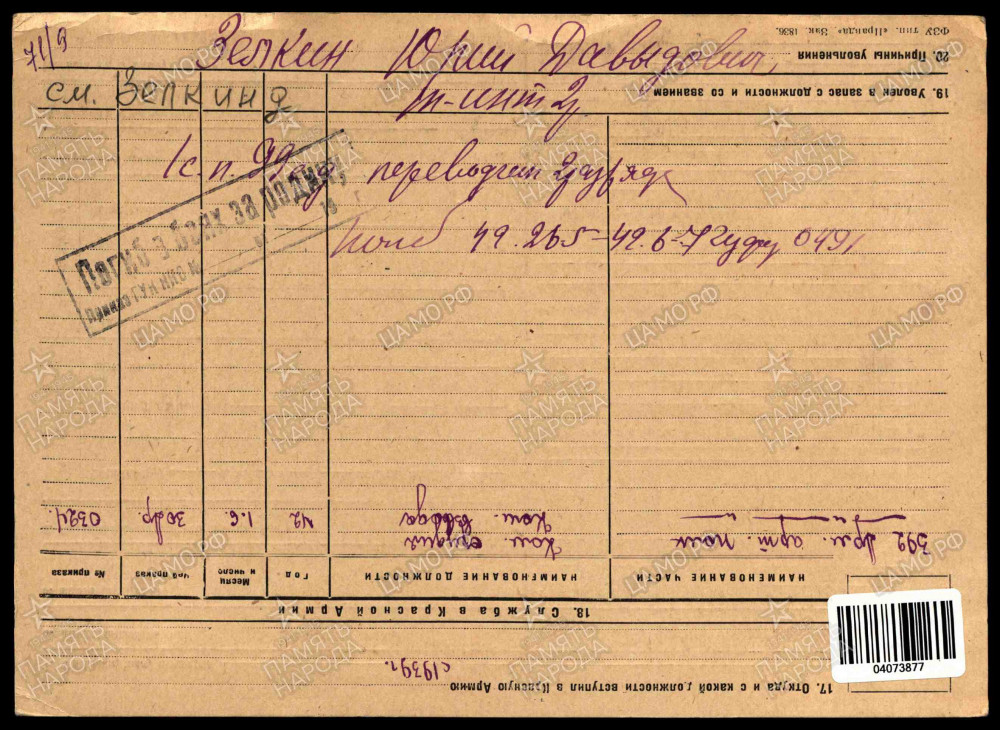 71/9
Зелкин Юрий Давыдович
см. Зелкинд
т-инт 2
1 с.п. 99 переводчик 2 разряда
погиб 49.265-42 6-7
Погиб в боях за родину
Приказ ГУК НКО №
ФЗУ тип. «Правда» Зак 1836.
20. Причины увольнения
19. Уволен в запас с должности и со званием
392 арт. полк Ком. орудия
" " Ком. взвода 42 1.6. 30 др. 0324.
НАИМЕНОВАНИЕ ЧАСТИ НАИМЕНОВАНИЕ ДОЛЖНОСТИ Год Месяц и число Чей приказ № приказа
18. Служба в Красной Армии
17. Откуда и с какой должности вступил в Красную Армию
с 1939 г.
04073877
ПАМЯТЬ НАРОДА
ЦАМО РФ